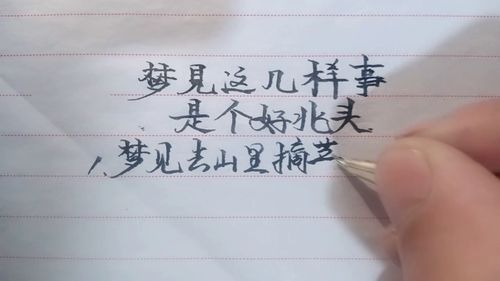 梦見这几样事
是个好兆头
1.梦见去山里摘